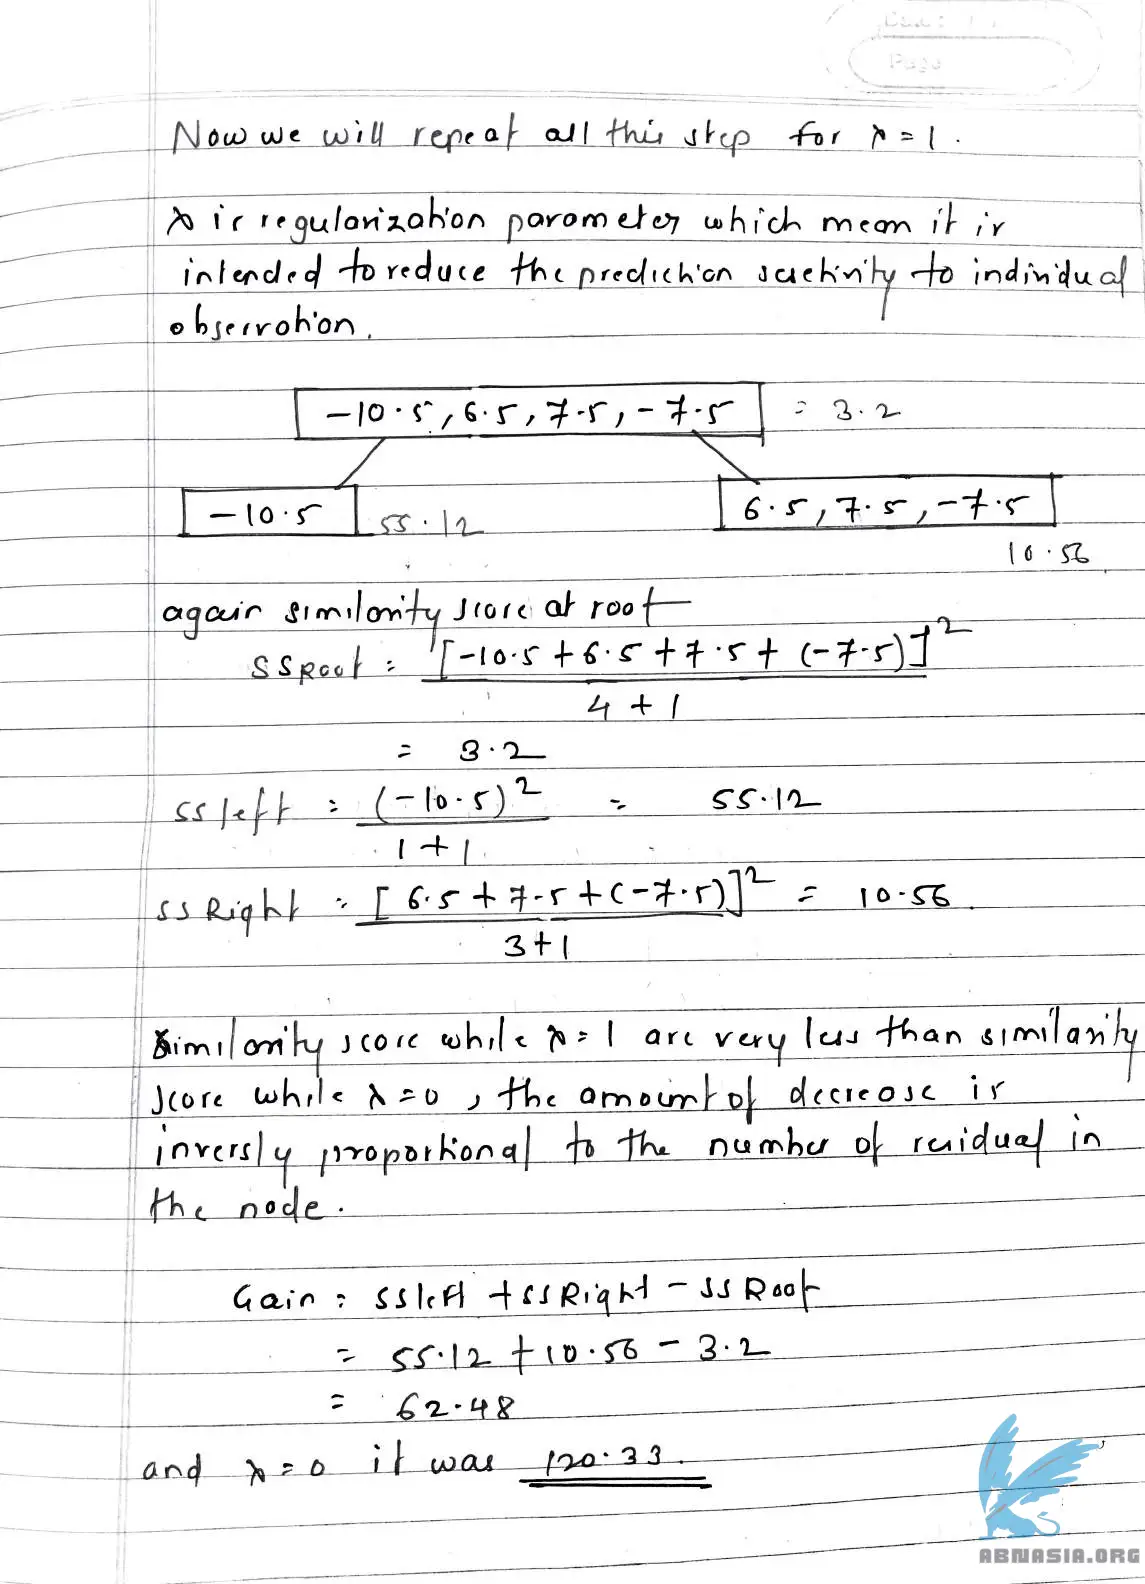 Date: / /
Page
Now we will repeat all this step for λ=1.
λ is regularization parameter which mean it is
intended to reduce the prediction sensitivity to individual
observation.
-10.5, 6.5, 7.5, -7.5 = 3.2
-10.5 55.12 6.5, 7.5, -7.5
10.56
again similarity score at root
SSRoot = [-10.5 + 6.5 + 7.5 + (-7.5)]²
4 + 1
= 3.2
SS left = (-10.5)² = 55.12
1 + 1
SS Right = [6.5 + 7.5 + (-7.5)]² = 10.56
3 + 1
Similarity score while λ=1 are very less than similarity
score while λ=0, the amount of decrease is
inversly proportional to the number of residual in
the node.
Gain = SSleft + SSRight - SSRoot
= 55.12 + 10.56 - 3.2
= 62.48
and λ=0 it was 120.33.
ABNASIA.ORG